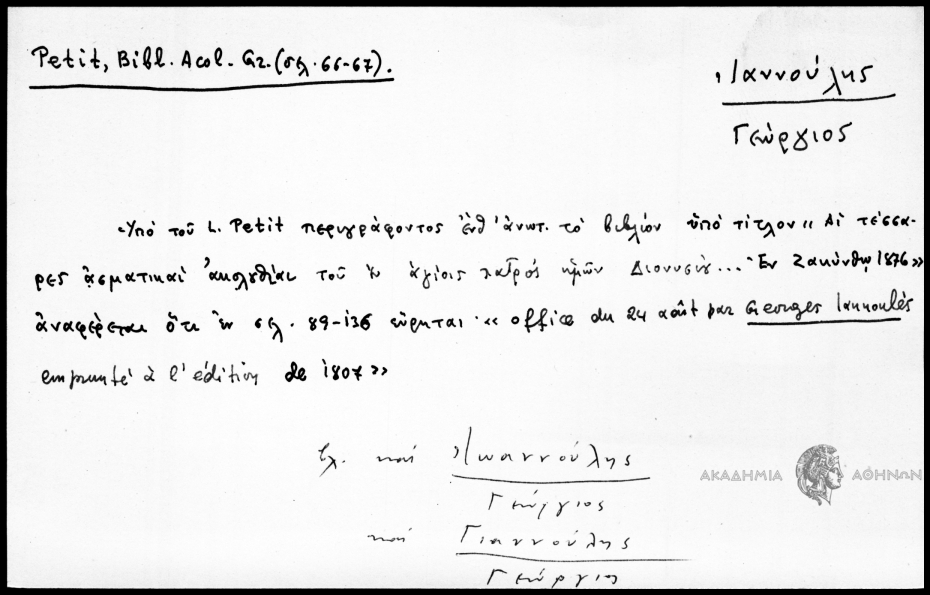 Petit, Bibl. Acol. Gr. (σελ. 66-67).
Ἰαννούλης
Γεώργιος
Ὑπὸ τοῦ L. Petit περιγράφοντος ἔνθ' ἀνωτ. τὸ βιβλίον ὑπὸ τίτλον « Αἱ τέσσα-
ρες ᾀσματικαὶ ἀκολουθίαι τοῦ ἐν ἁγίοις πατρός ἡμῶν Διονυσίου... Ἐν Ζακύνθῳ 1876»
ἀναφέρεται ὅτι ἐν σελ. 89-136 εὕρηται « office du 24 août par Georges Iannoulès
emprunté à l'édition de 1807»
βλ. καὶ Ἰωαννούλης
Γεώργιος
καὶ Γιαννούλης
Γεώργιος
ΑΚΑΔΗΜΙΑ ΑΘΗΝΩΝ